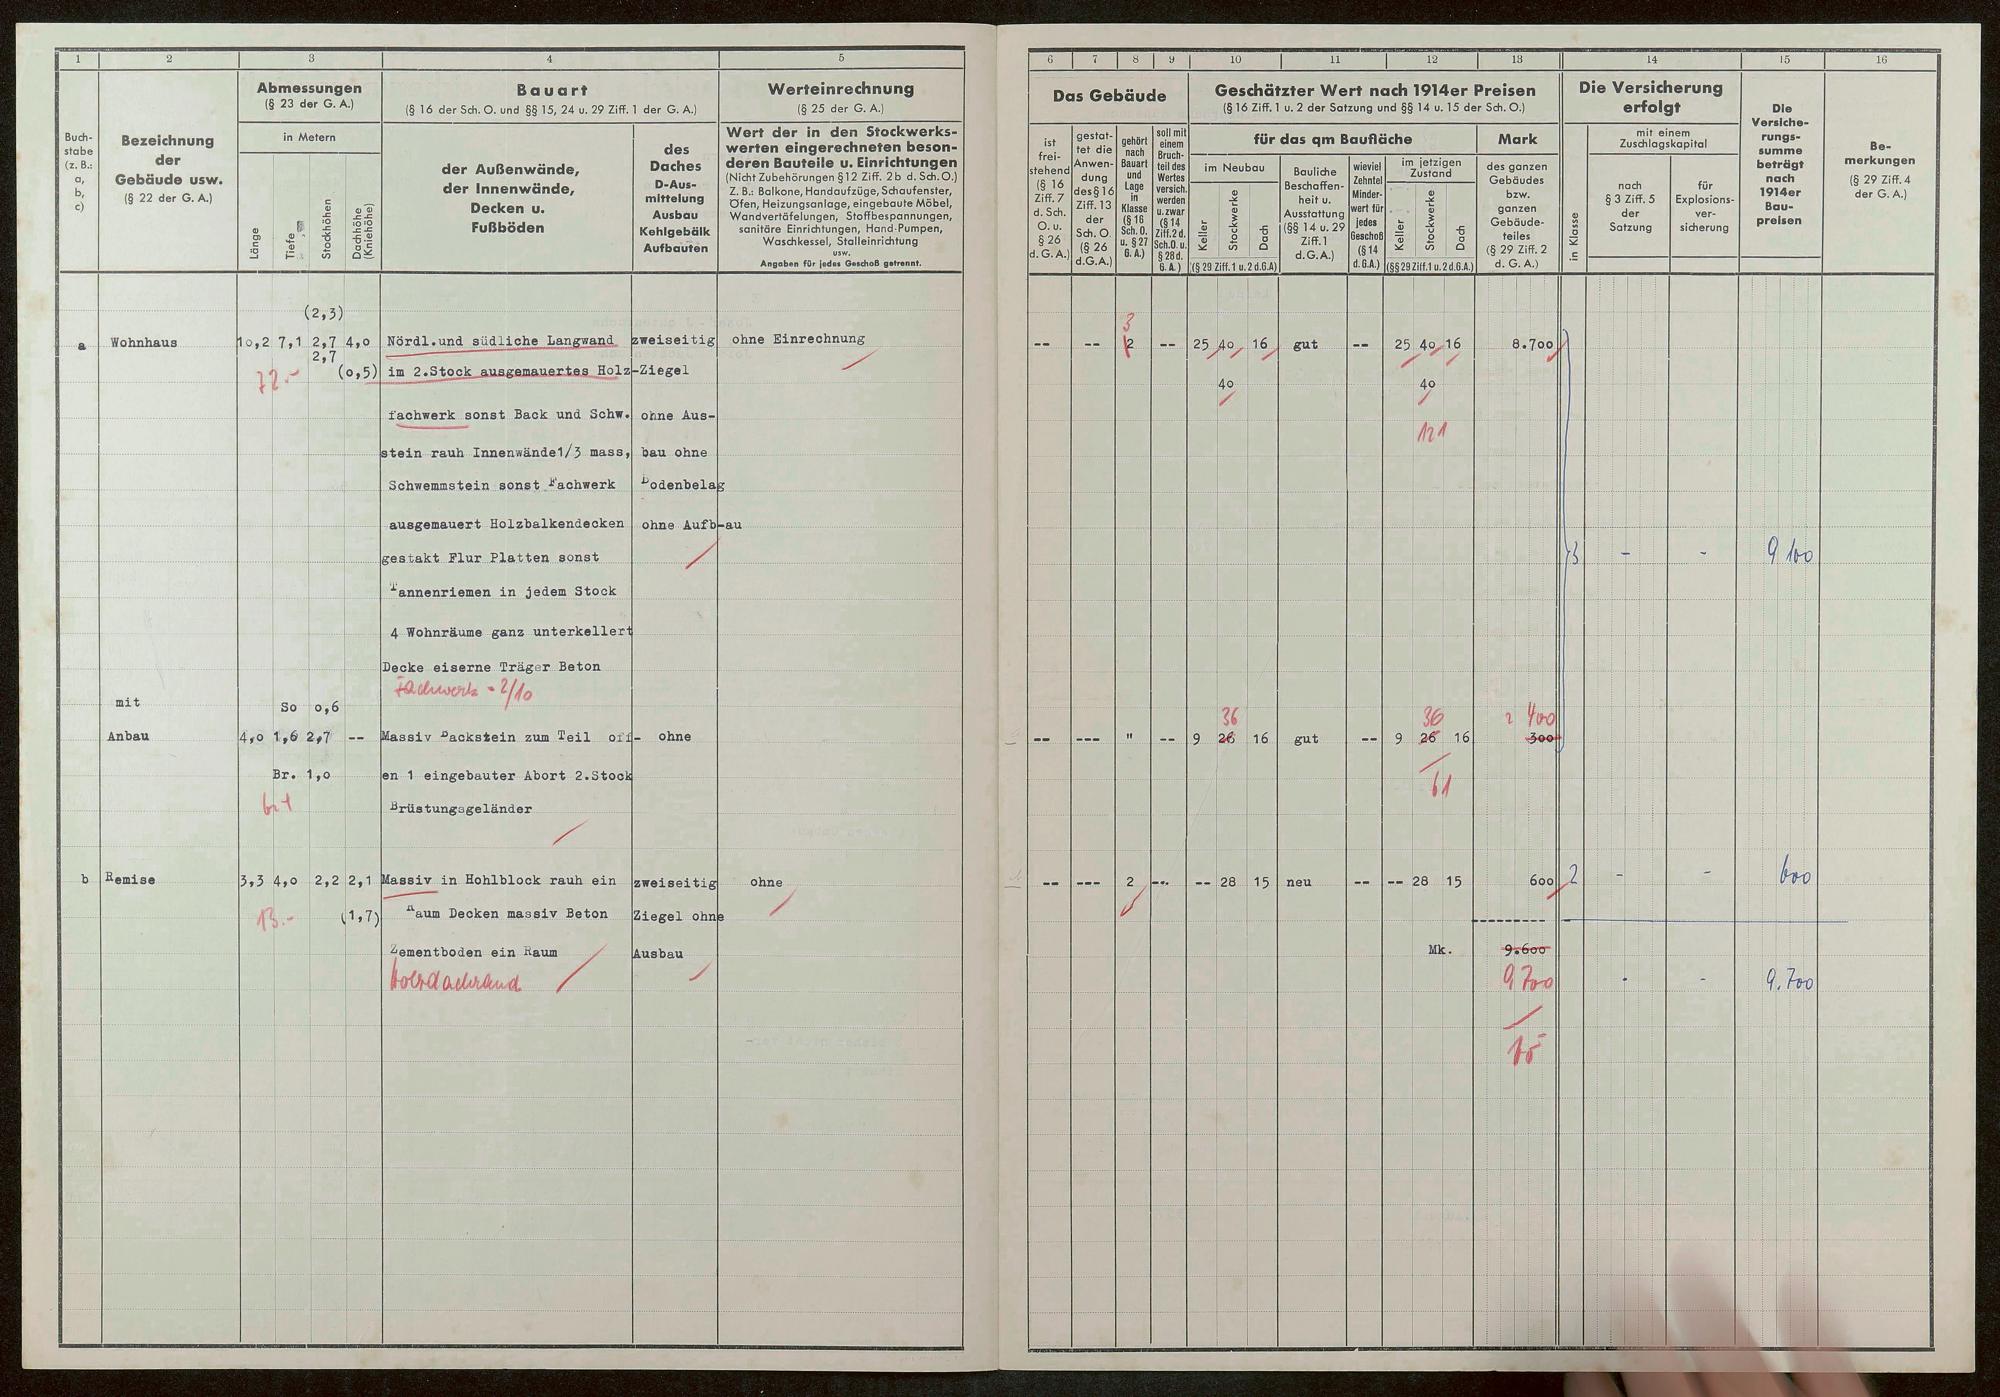 1 2 3 4 5
Buch-
stabe
(z. B.:
a,
b,
c)
Bezeichnung
der
Gebäude usw.
(§ 22 der G. A.)
Abmessungen
(§ 23 der G. A.)
in Metern
Länge
Tiefe
Stockhöhen
Dachhöhe
(Kniehöhe)
Bauart
(§ 16 der Sch. O. und §§ 15, 24 u. 29 Ziff. 1 der G. A.)
der Außenwände,
der Innenwände,
Decken u.
Fußböden
des
Daches
D-Aus-
mittelung
Ausbau
Kehlgebälk
Aufbauten
Werteinrechnung
(§ 25 der G. A.)
Wert der in den Stockwerks-
werten eingerechneten beson-
deren Bauteile u. Einrichtungen
(Nicht Zubehörungen § 12 Ziff. 2b d. Sch. O.)
Z. B.: Balkone, Handaufzüge, Schaufenster,
Öfen, Heizungsanlage, eingebaute Möbel,
Wandvertäfelungen, Stoffbespannungen,
sanitäre Einrichtungen, Hand-Pumpen,
Waschkessel, Stalleinrichtung
usw.
Angaben für jedes Geschoß getrennt.
(2,3)
a Wohnhaus 10,2 7,1 2,7 4,0 Nördl.und südliche Langwand zweiseitig ohne Einrechnung
2,7
72.- (0,5) im 2.Stock ausgemauertes Holz-Ziegel
fachwerk sonst Back und Schw. ohne Aus-
stein rauh Innenwände1/3 mass, bau ohne
Schwemmstein sonst Fachwerk Bodenbelag
ausgemauert Holzbalkendecken ohne Aufb-au
gestakt Flur Platten sonst
Tannenriemen in jedem Stock
4 Wohnräume ganz unterkellert
Decke eiserne Träger Beton
Fachwerk = 2/10
mit So 0,6
Anbau 4,0 1,6 2,7 -- Massiv Backstein zum Teil off- ohne
Br. 1,0 en 1 eingebauter Abort 2.Stock
Brüstungsgeländer
b Remise 3,3 4,0 2,2 2,1 Massiv in Hohlblock rauh ein zweiseitig ohne
13.- (1,7) Raum Decken massiv Beton Ziegel ohne
Zementboden ein Raum Ausbau
6 7 8 9 10 11 12 13 14 15 16
Das Gebäude
ist
frei-
stehend
(§ 16
Ziff. 7
d. Sch.
O. u.
§ 26
d. G. A.)
gestat-
tet die
Anwen-
dung
des § 16
Ziff. 13
der
Sch. O.
(§ 26
d.G.A.)
gehört
nach
Bauart
und
Lage
in
Klasse
(§ 16
Sch. O.
u. § 27
G. A.)
soll mit
einem
Bruch-
teil des
Wertes
versich.
werden
u. zwar
(§ 14
Ziff. 2 d.
Sch.O. u.
§ 28 d.
G. A.)
Geschätzter Wert nach 1914er Preisen
(§ 16 Ziff. 1 u. 2 der Satzung und §§ 14 u. 15 der Sch. O.)
für das qm Baufläche
im Neubau
Keller
Stockwerke
Dach
(§ 29 Ziff. 1 u. 2 d.G.A)
Bauliche
Beschaffen-
heit u.
Ausstattung
(§§ 14 u. 29
Ziff. 1
d. G. A.)
wieviel
Zehntel
Minder-
wert für
jedes
Geschoß
(§ 14
d. G. A.)
im jetzigen
Zustand
Keller
Stockwerke
Dach
(§§ 29 Ziff. 1 u. 2 d.G.A.)
Mark
des ganzen
Gebäudes
bzw.
ganzen
Gebäude-
teiles
(§ 29 Ziff. 2
d. G. A.)
Die Versicherung
erfolgt
in Klasse
mit einem
Zuschlagskapital
nach
§ 3 Ziff. 5
der
Satzung
für
Explosions-
ver-
sicherung
Die
Versiche-
rungs-
summe
beträgt
nach
1914er
Bau-
preisen
Be-
merkungen
(§ 29 Ziff. 4
der G. A.)
3
-- -- 2 -- 25 40 16 gut -- 25 40 16 8.700
40 40
121
3 - - 9 100
36 36 400
-- --- " -- 9 26 16 gut -- 9 26 16 300
61
-- --- 2 --. -- 28 15 neu -- -- 28 15 600 2 - - 600
Mk. 9.600
9700 - - 9.700